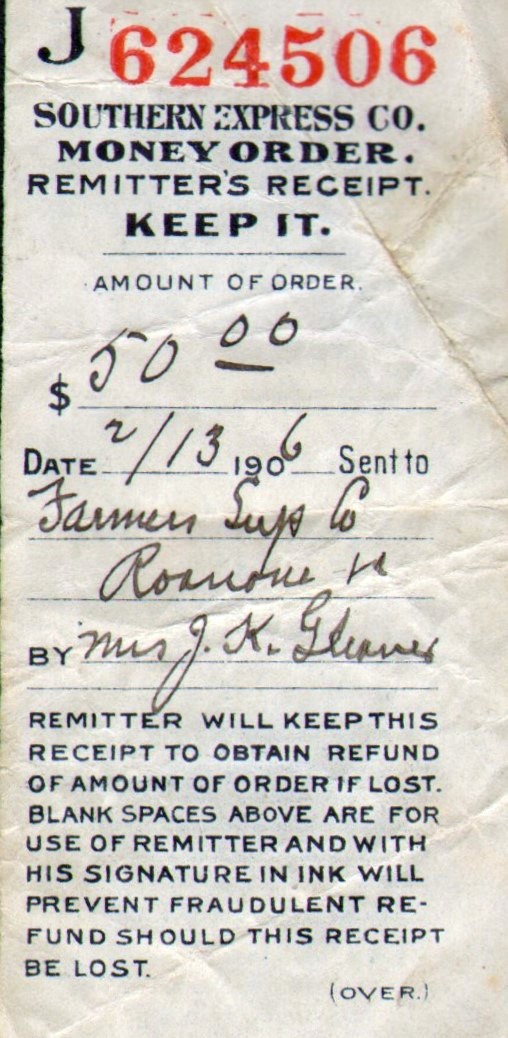 J 624506
SOUTHERN EXPRESS CO.
MONEY ORDER.
REMITTER'S RECEIPT.
KEEP IT.
AMOUNT OF ORDER.
$ 50 00
DATE 2/13 1906 Sent to
Farmers Sup Co
Roanoke Va
BY Mrs J. K.
REMITTER WILL KEEP THIS
RECEIPT TO OBTAIN REFUND
OF AMOUNT OF ORDER IF LOST.
BLANK SPACES ABOVE ARE FOR
USE OF REMITTER AND WITH
HIS SIGNATURE IN INK WILL
PREVENT FRAUDULENT RE-
FUND SHOULD THIS RECEIPT
BE LOST.
(OVER.)